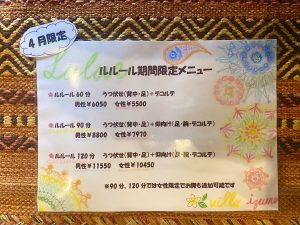 4月限定
Lulue
ルルール期間限定メニュー
ルルール60分 うつ伏せ(背中・足)+デコルテ
男性￥6050 女性￥5500
ルルール90分 うつ伏せ(背中・足)+仰向け(足・腕・デコルテ)
男性￥8800 女性￥7970
ルルール120分 うつ伏せ(背中・足)+仰向け(足・腕・デコルテ)
男性￥11550 女性￥10450
※90分、120分では女性限定でお腹も追加可能です
villa izumo